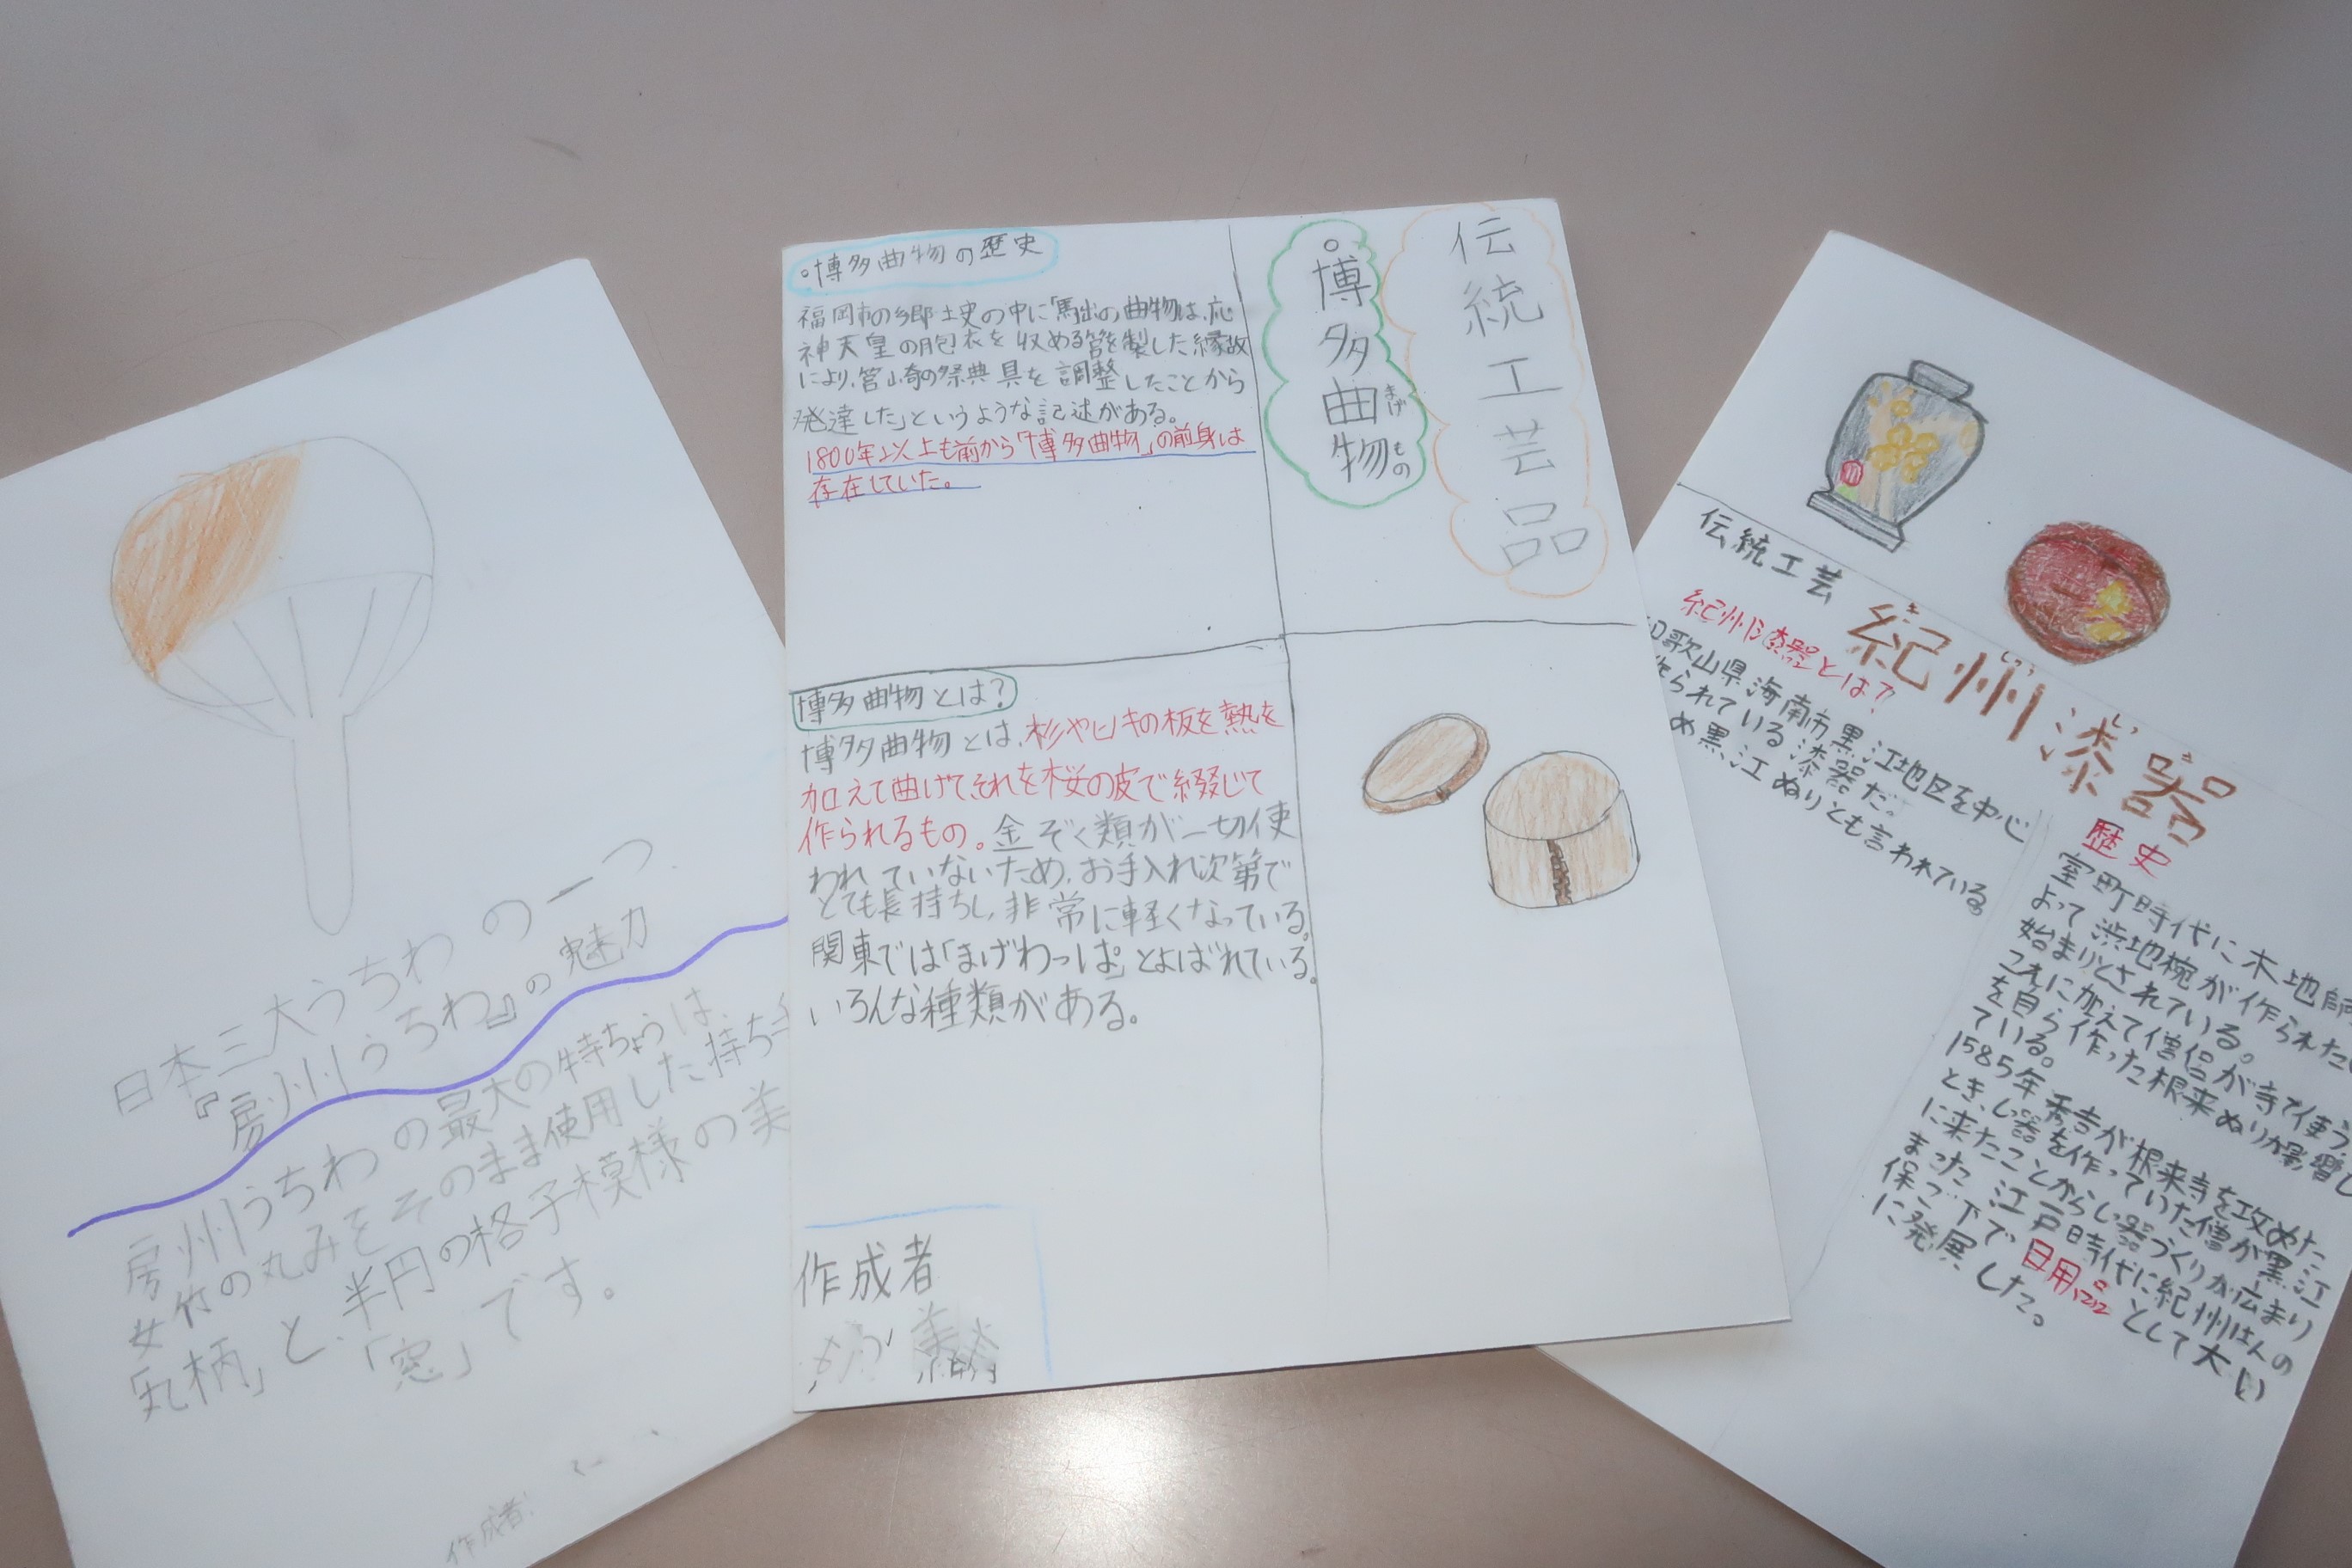 日本三大うちわの一つ
『房州うちわ』の魅力
房州うちわの最大の特ちょうは、
女竹の丸みをそのまま使用した持ち手
「丸柄」と、半円の格子模様の美
「窓」です。
作成者
伝統工芸品
。博多曲物
まげもの
。博多曲物の歴史
福岡市の郷土史の中に「馬出の曲物は、応
神天皇の胞衣を収める筥を製した縁故
により、筥崎の祭典具を調整したことから
発達した」というような記述がある。
1800年以上も前から「博多曲物」の前身は
存在していた。
博多曲物とは?
博多曲物とは、杉やヒノキの板を熱を
加えて曲げてそれを桜の皮で綴じて
作られるもの。金ぞく類が一切使
われていないため、お手入れ次第で
とても長持ちし、非常に軽くなっている。
関東では「まげわっぱ」とよばれている。
いろんな種類がある。
作成者
伝統工芸
紀州漆器
きしゅうしっき
紀州漆器とは?
歌山県海南市黒江地区を中心
作られている漆器だ。
め黒江ぬりとも言われている。
歴史
室町時代に木地師
よって渋地椀が作られた
始まりとされている。
これに加えて僧侶が寺で使う
を自ら作った根来ぬりが影響し
ている。
1585年秀吉が根来寺を攻めた
とき、しっ器を作っていた僧が黒江
に来たことからしっ器づくりが広まり
まった江戸時代に紀州はんの
保ご下で日用品として大い
に発展した。